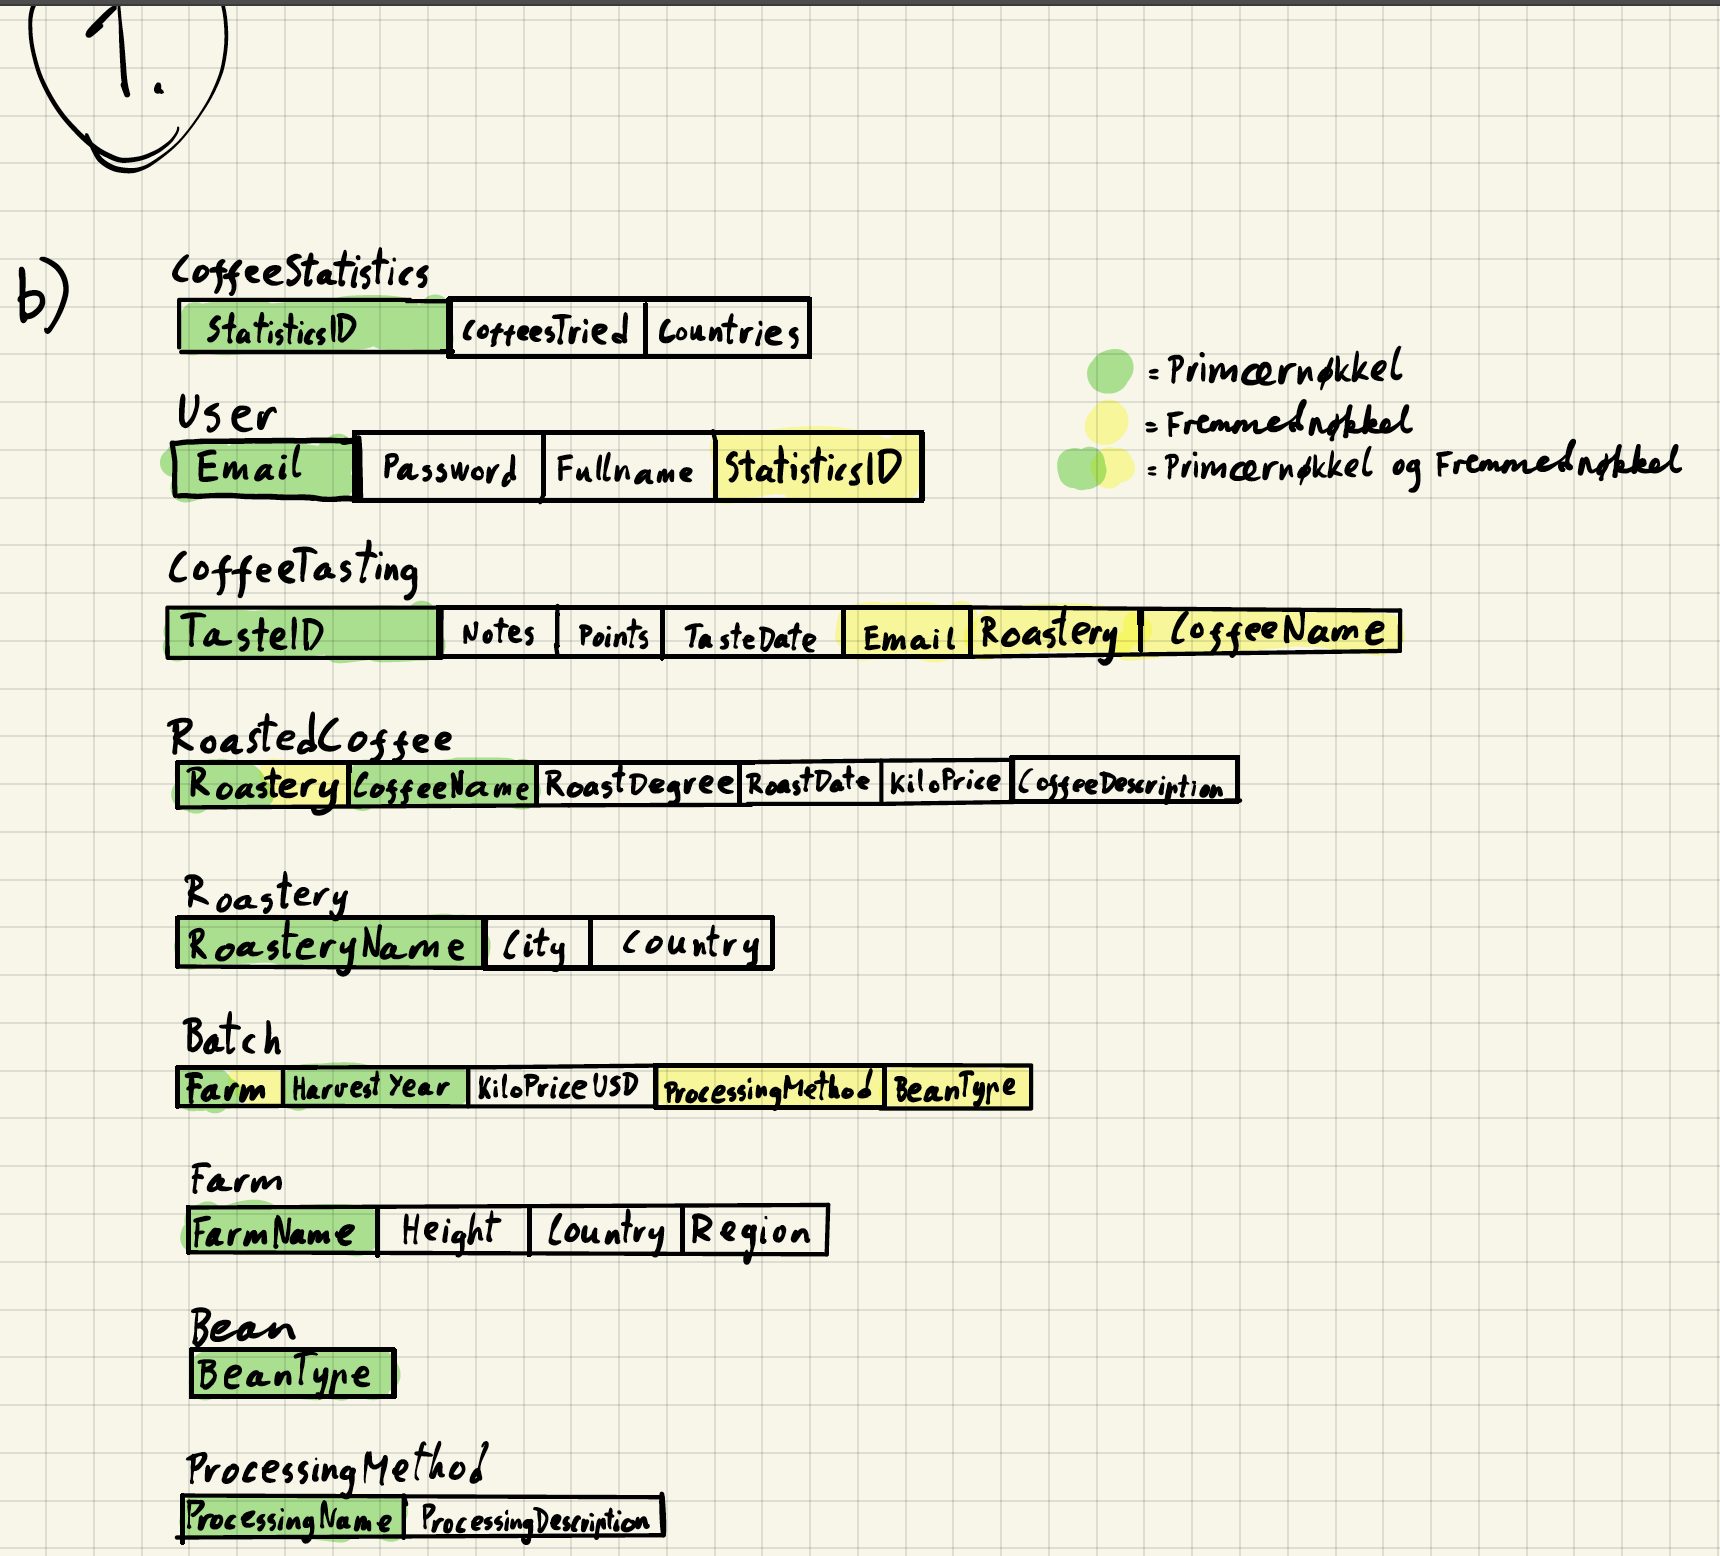 1.
b)
CoffeeStatistics
StatisticsID CoffeesTried Countries
= Primærnøkkel
= Fremmednøkkel
= Primærnøkkel og Fremmednøkkel
User
Email Password Fullname StatisticsID
CoffeeTasting
TasteID Notes Points TasteDate Email Roastery CoffeeName
RoastedCoffee
Roastery CoffeeName RoastDegree RoastDate KiloPrice CoffeeDescription
Roastery
RoasteryName City Country
Batch
Farm HarvestYear KiloPriceUSD ProcessingMethod BeanType
Farm
FarmName Height Country Region
Bean
BeanType
ProcessingMethod
ProcessingName ProcessingDescription